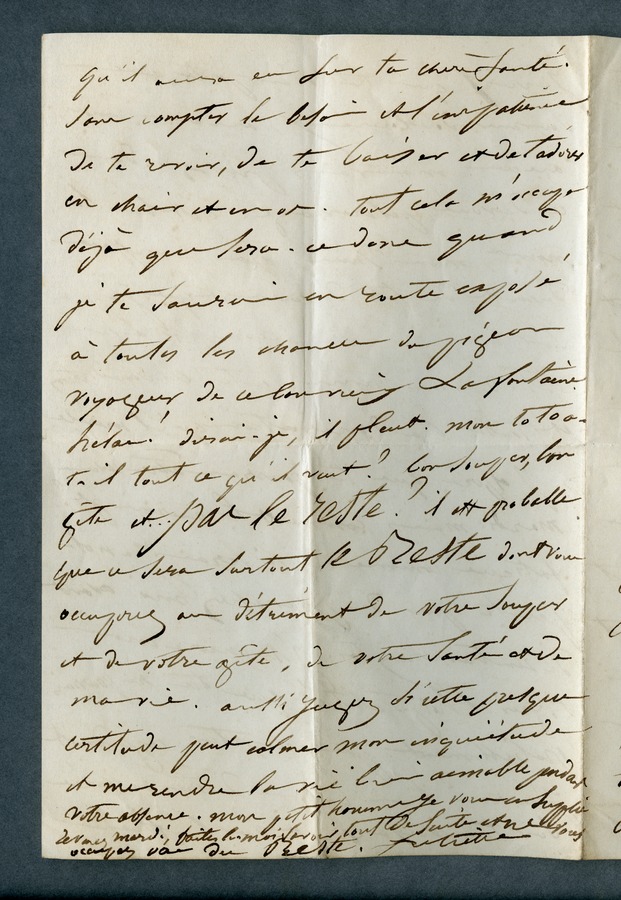 qu'il aura eu sur ta chère santé.
Sans compter le besoin et l'impatience
de te revoir, de te baiser et de t'adorer
en chair et en os. Tout cela m'occupe
déjà que sera-ce donc quand
je te saurai en route exposé
à toutes les chances du pigeon
voyageur de ce bon vieux La fontaine
hélas! dirai-je, il pleut. mon toto a-
t-il tout ce qu'il veut? bon souper, bon
gîte et.. pas le reste? il est probable
que ce sera surtout le Reste dont vous
occuperez au détriment de votre souper
et de votre gîte, de votre santé et de
ma vie. aussi jugez si cette presque
certitude peut calmer mon inquiétude
et me rendre la vie bien aimable pendant
votre absence. mon petit homme je vous en supplie
revenez mardi, faites-le moi savoir tout de suite et ne vous
occupez pas du Reste. Juliette